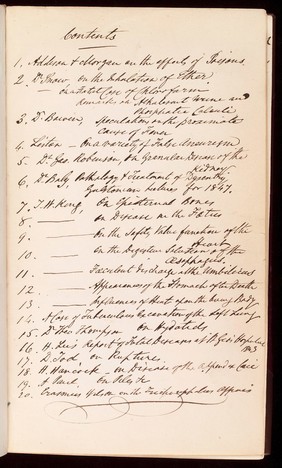 Contents
1. Addison & Morgan on the effects of Poisons.
2. Dr Snow, on the Inhalation of Ether
on a fatal Case of Chloroform
Remarks on Alkalescent Urine and
Phosphatic Calculi
3. Dr Speculations on the proximate
Cause of
4. Liston - On a variety of False Aneurysm
5. Dr Geo Robinson, on Granular Disease of the
Kidney.
6. Dr Baly, Pathology & Treatment of Dysentry,
Gulstonian Lectures for 1847.
7. T. H. King, On Episternal Bones
8. — on Disease in the Foetus
9. — On the Safety Valve function of the
Heart
10. — on the Digestive Solution of the
Oesophagus.
11. — Feculent discharge at the Umbilicus
12. — Appearances of the Stomach after Death
13. — Influences of Heat upon the living Body
14. A Case of Tuberculous Excavation of the left Lung
15. Dr Theo Thompson on Hydatids
16. H. Lee's Report of Fatal Diseases at St Geo's Hospl in
1843
17. D. Tod on Ruptures.
18. H. Hancock - on Disease of the Append. Caeci
19. A on
20. Erasmus Wilson on the Affair